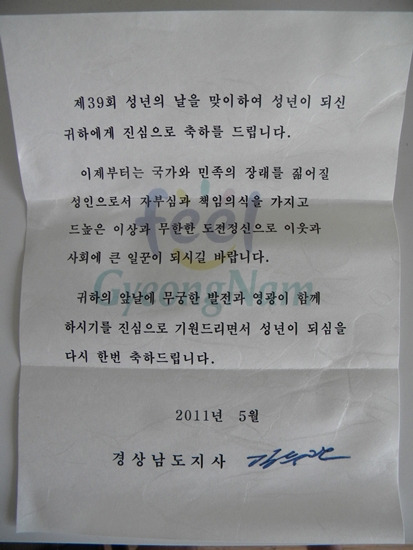 제39회 성년의 날을 맞이하여 성년이 되신
귀하에게 진심으로 축하를 드립니다.
이제부터는 국가와 민족의 장래를 짊어질
성인으로서 자부심과 책임의식을 가지고
드높은 이상과 무한한 도전정신으로 이웃과
사회에 큰 일꾼이 되시길 바랍니다.
feel
GyeongNam
귀하의 앞날에 무궁한 발전과 영광이 함께
하시기를 진심으로 기원드리면서 성년이 되심을
다시 한번 축하드립니다.
2011년 5월
경상남도지사